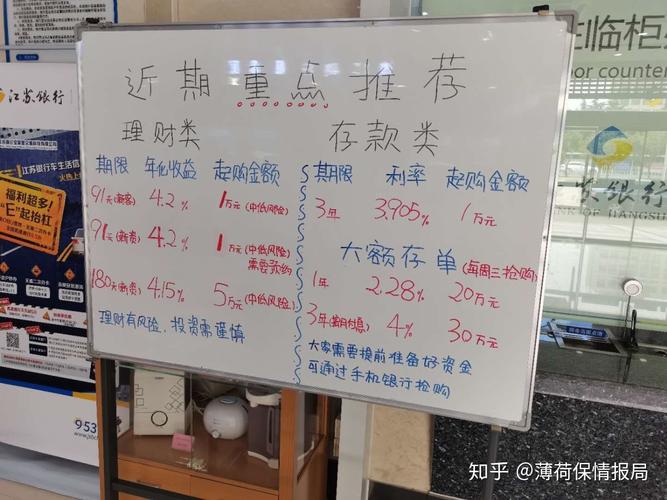 近期重点推荐
理财类
期限 年化收益 起购金额
91天(新客) 4.2% 1万元(中低风险)
91天(新资) 4.2% 1万元(中低风险)
需要预约
180天(新资) 4.15% 5万元(中低风险)
理财有风险，投资需谨慎
存款类
期限 利率 起购金额
3年 3.905% 1万元
大额存单(每周三抢购)
1年 2.28% 20万元
3年(按月付息) 4% 30万元
大家需要提前准备好资金
可通过手机银行抢购
江苏银行
江苏银行车生活信
福利超多!
"E"起抬杠
953
生临柜
or counter
苏银行
K OF JIANGSU
知乎 @薄荷保情报局